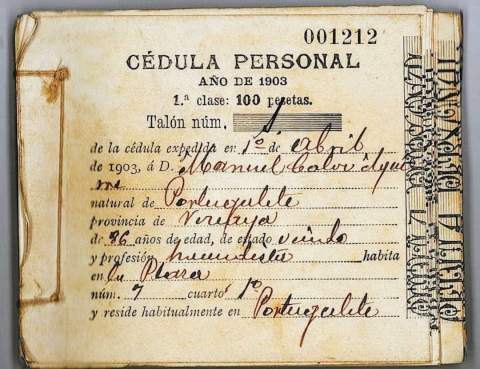 001212
CÉDULA PERSONAL
AÑO DE 1903
1.ª clase: 100 pesetas.
Talón núm. 1
de la cédula expedida en 1º de Abril
de 1903, á D. Manuel Calvo é Agui
rre
natural de Portugalete
provincia de Vizcaya
de 86 años de edad, de estado viudo
y profesión habita
en la Plaza
núm. 7 cuarto 1º
y reside habitualmente en Portugalete